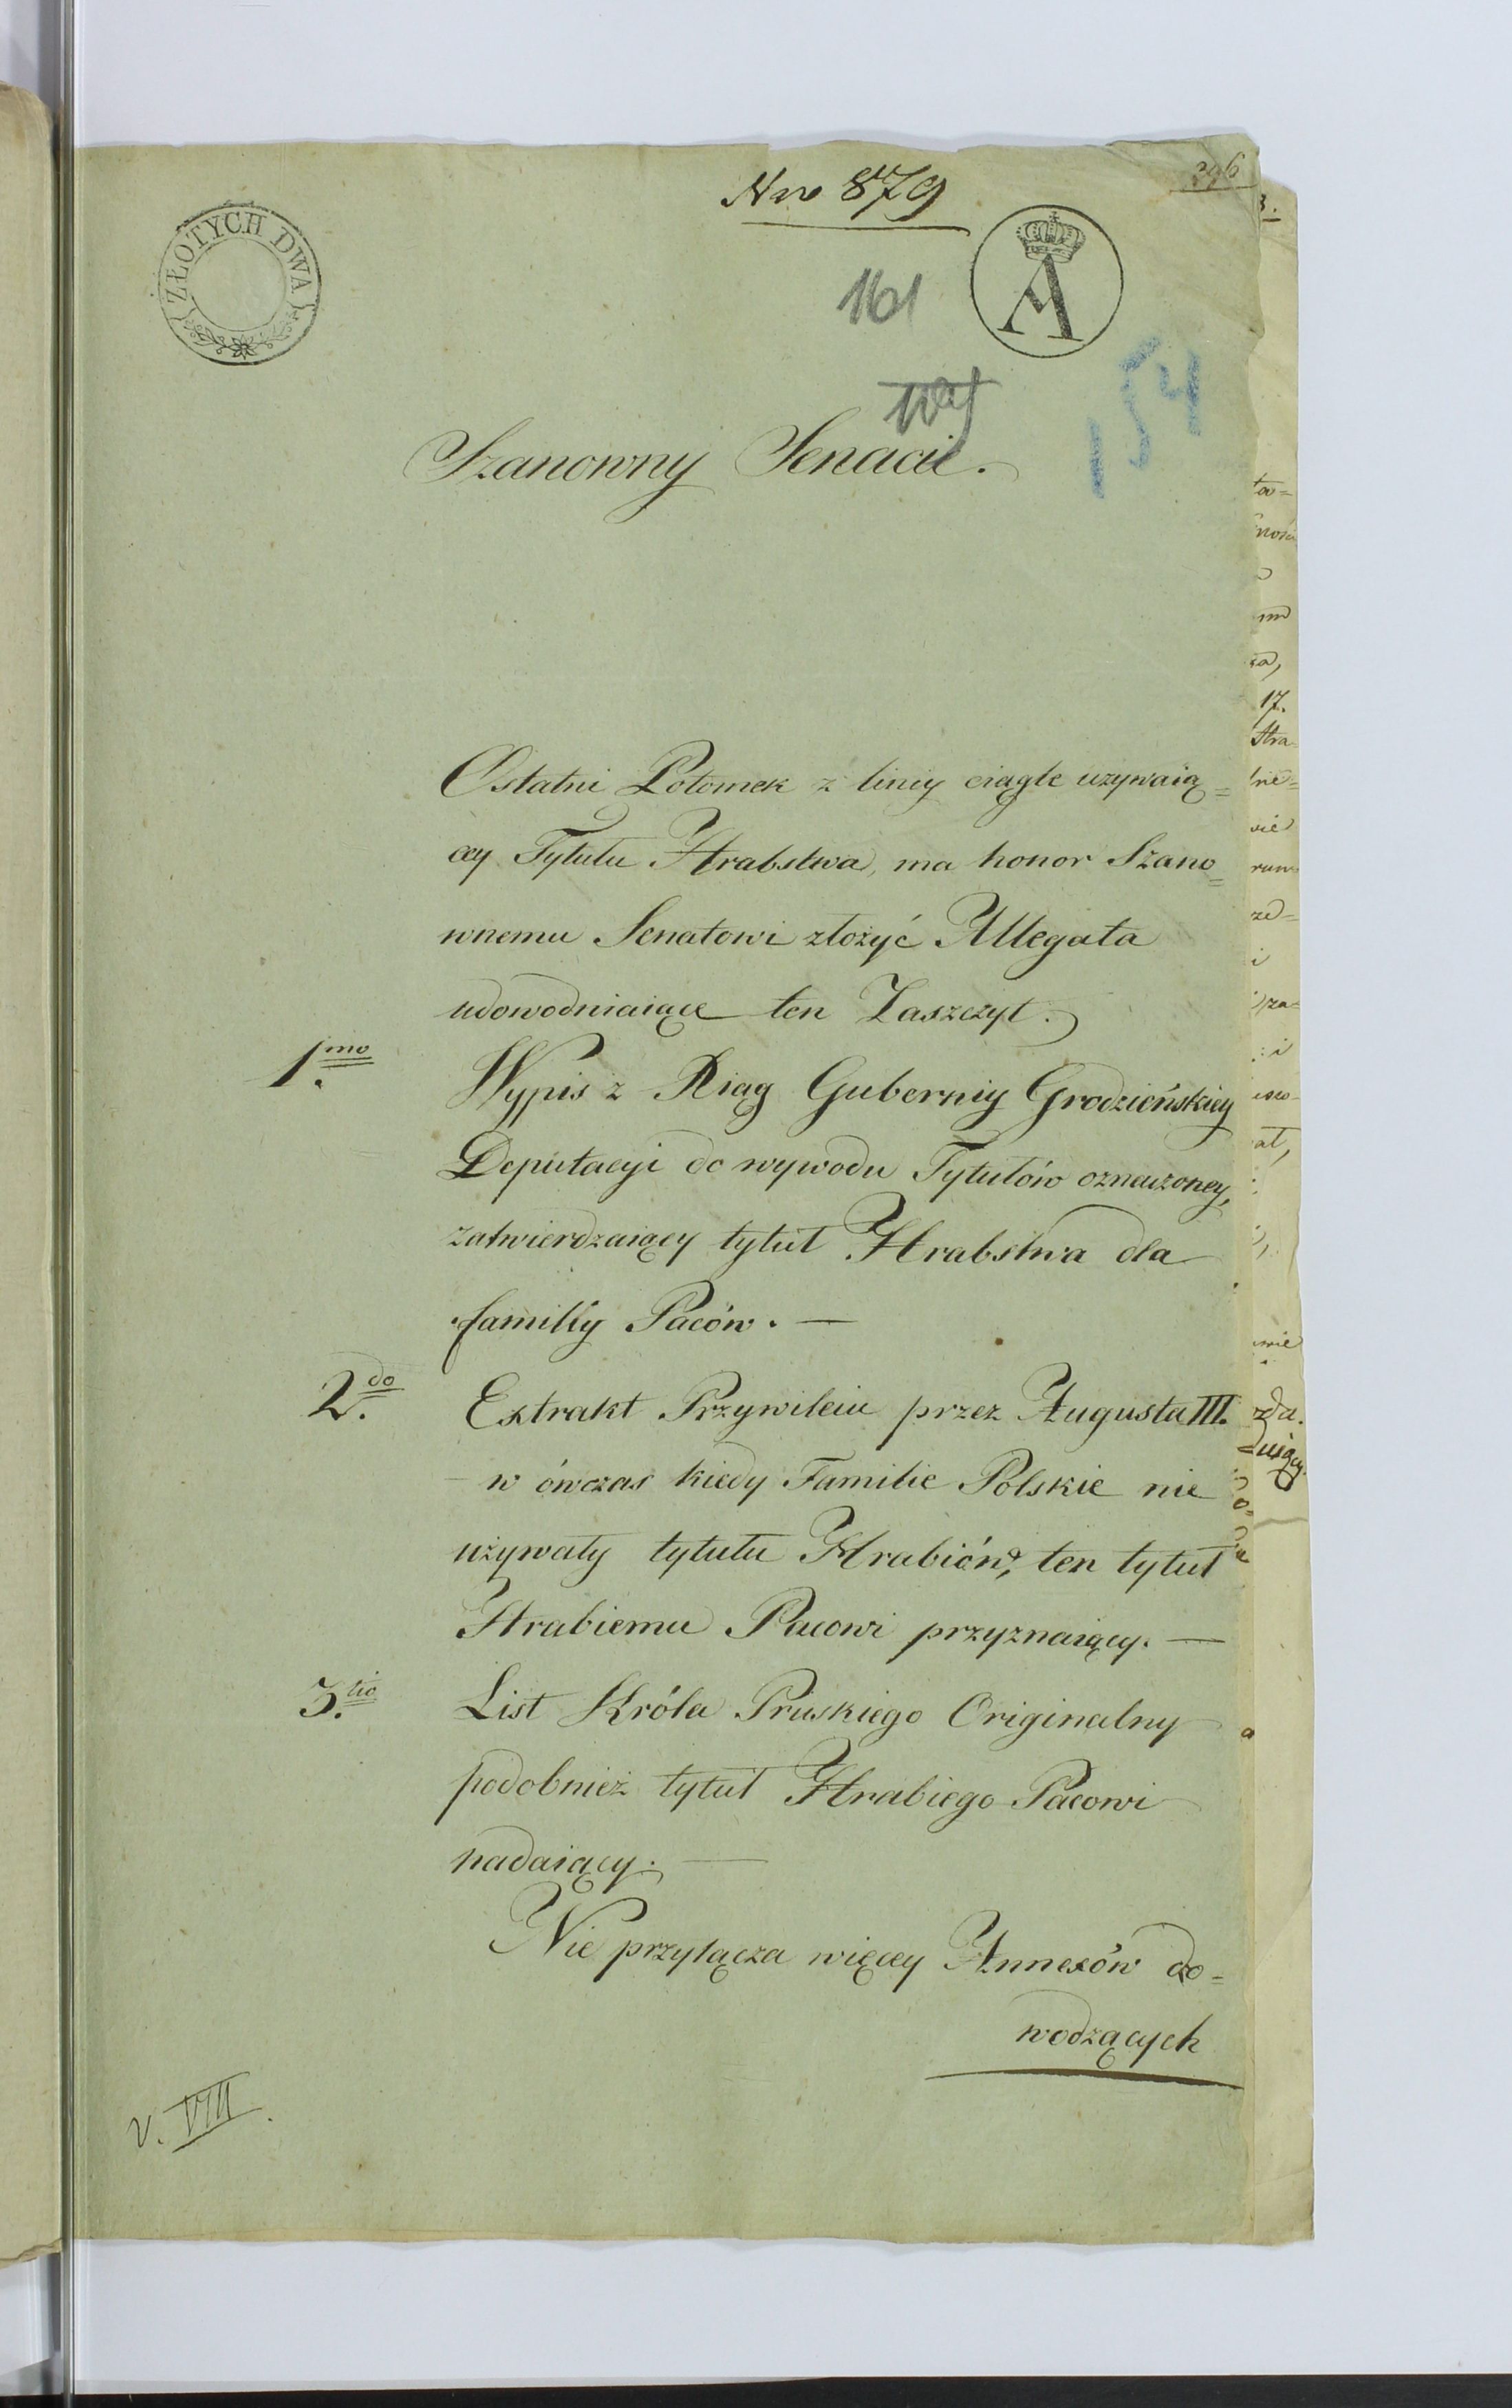 Nro 879
296
ZŁOTYCH DWA
A
161
154
Szanowny Senacie.
Ostatni Potomek z liniy ciągle uzywaią=
cey Tytułu Hrabstwa, ma honor Szano=
wnemu Senatowi złożyć Allegata
udowodniaiące ten Zaszczyt.
1mo. Wypis z Xiąg Guberniy Grodzieńskiey
Deputacyi do wywodu Tytułów oznaczoney,
zatwierdzaiący tytuł Hrabstwa dla
familiy Paców. —
2do. Extrakt Przywileiu przez Augusta III.
w ówczas kiedy Familie Polskie nie
używały tytułu Hrabiów, ten tytuł
Hrabiemu Pacowi przyznaiący. —
3tio. List Króla Pruskiego Originalny
podobnież tytuł Hrabiego Pacowi
nadaiący. —
Nie przyłącza więcey Annexów do=
wodzących
v. VIII.